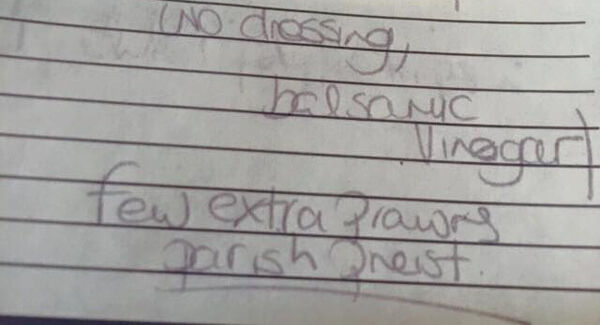 (NO dressing,
balsamic
Vinegar)
few extra Prawns
parish Preist.